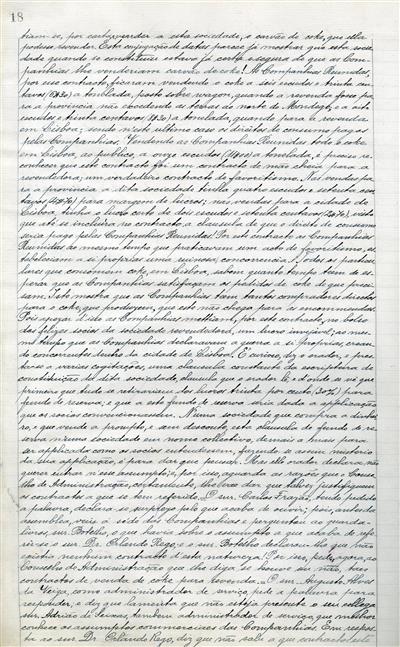 18
tiam-se, por carta, vender a esta sociedade, o carvão de coke, que ella
podesse revender. Esta conjugação de datas parece já mostrar que esta socie-
dade quando se constituiu estava já certa e segura de que as Com-
panhias lhe venderiam carvão de coke! As Companhias Reunidas,
por esse contracto, ficaram vendendo o coke a seis escudos e trinta cen-
tavos a tonelada, posto sobre wagon, quando a revenda fosse pa-
ra a provincia não excedendo as terras do norte do Mondego, e a oito
escudos e trinta centavos a tonelada, quando para a revenda
em Lisboa; sendo n'este ultimo caso os direitos de consumo pagos
pelas Companhias. Vendendo as Companhias Reunidas todo o coke
em Lisboa, ao publico, a onze escudos a tonelada, é preciso re-
conhecer que este contracto foi um contracto de mão cheia para a
revendedora; um verdadeiro contracto de favoritismo. Nas vendas pa-
ra a provincia a dita sociedade tinha quatro escudos e setenta cen-
tavos para margem de lucros; nas vendas para a cidade de
Lisboa tinha o lucro certo de dois escudos e setenta centavos, visto
que até se incluiu no contracto a clausula de que o direito de consumo
seria pago pelas Companhias Reunidas! Por este contracto as Companhias
Reunidas ao mesmo tempo que praticavam um acto de favoritismo, es-
tabeleciam a si proprias uma ruinosa concorrencia! Todos os particu-
lares que consomem coke, em Lisboa, sabem quanto tempo teem de es-
perar que as Companhias satisfaçam os pedidos de coke de que preci-
sam. Isto mostra que as Companhias teem tantos compradores directos
para o coke, que produzem, que este não chega para as encommendas.
Pois apezar d'isto as Companhias mettiam, por este contracto, no bolso
dos felizes socios da sociedade revendedora, um lucro invejavel; ao mes-
mo tempo que as Companhias declaravam a guerra a si proprias, crean-
do concorrentes dentro da cidade de Lisboa! É curioso, diz o orador, e pres-
ta-se a varias cogitações, uma clausula constante da escriptura de
constituição da dita sociedade, clausula que o orador lê, e d'onde se vê que
primeiro que tudo se retirariam dos lucros trinta por cento (30%) para
fundo de reserva, e que a este fundo de reserva seria dada a applicação
que os socios convencionassem. N'uma sociedade que compra a dinhei-
ro, e que vende a prompto, e sem desconto, esta clausula de fundo de re-
serva n'uma sociedade em nome collectivo, demais a mais para
ser applicada como os socios entendessem, fazendo-se assim misterio
da sua applicação, é para dar que pensar. Mas elle orador declara não
querer entrar n'esse assumpto; e, por isso, aguarda as razões que o Conse-
lho de Administração, certamente, lhe ha de dar que talvez justifiquem
os contractos a que se tem referido. O sr. Carlos Frazão, tendo pedido
a palavra, declara-se surprezo pelo que acaba de ouvir; pois, antes da
assemblea, veio á séde das Companhias e perguntou ao guarda-
livros, sr. Botelho, o que havia sobre o assumpto a que acaba de refe-
rir-se o sr. Dr. Orlando Rego; e o sr. Botelho declarou-lhe que não
existia nenhum contracto d'esta natureza. Por isso, pede, agora, ao
Conselho de Administração que lhe diga se houve ou não, taes
contractos de venda de coke para revenda. O sr. Augusto Alves
da Veiga, como administrador de serviço, pede a palavra para
responder, e diz que lamenta que não esteja presente o seu collega
sr. Adrião de Seixas, tambem administrador de serviço, que melhor
conhece os assumptos commerciaes das Companhias. Em respos-
ta ao sr. Dr. Orlando Rego, diz que não sabe o que contractos este